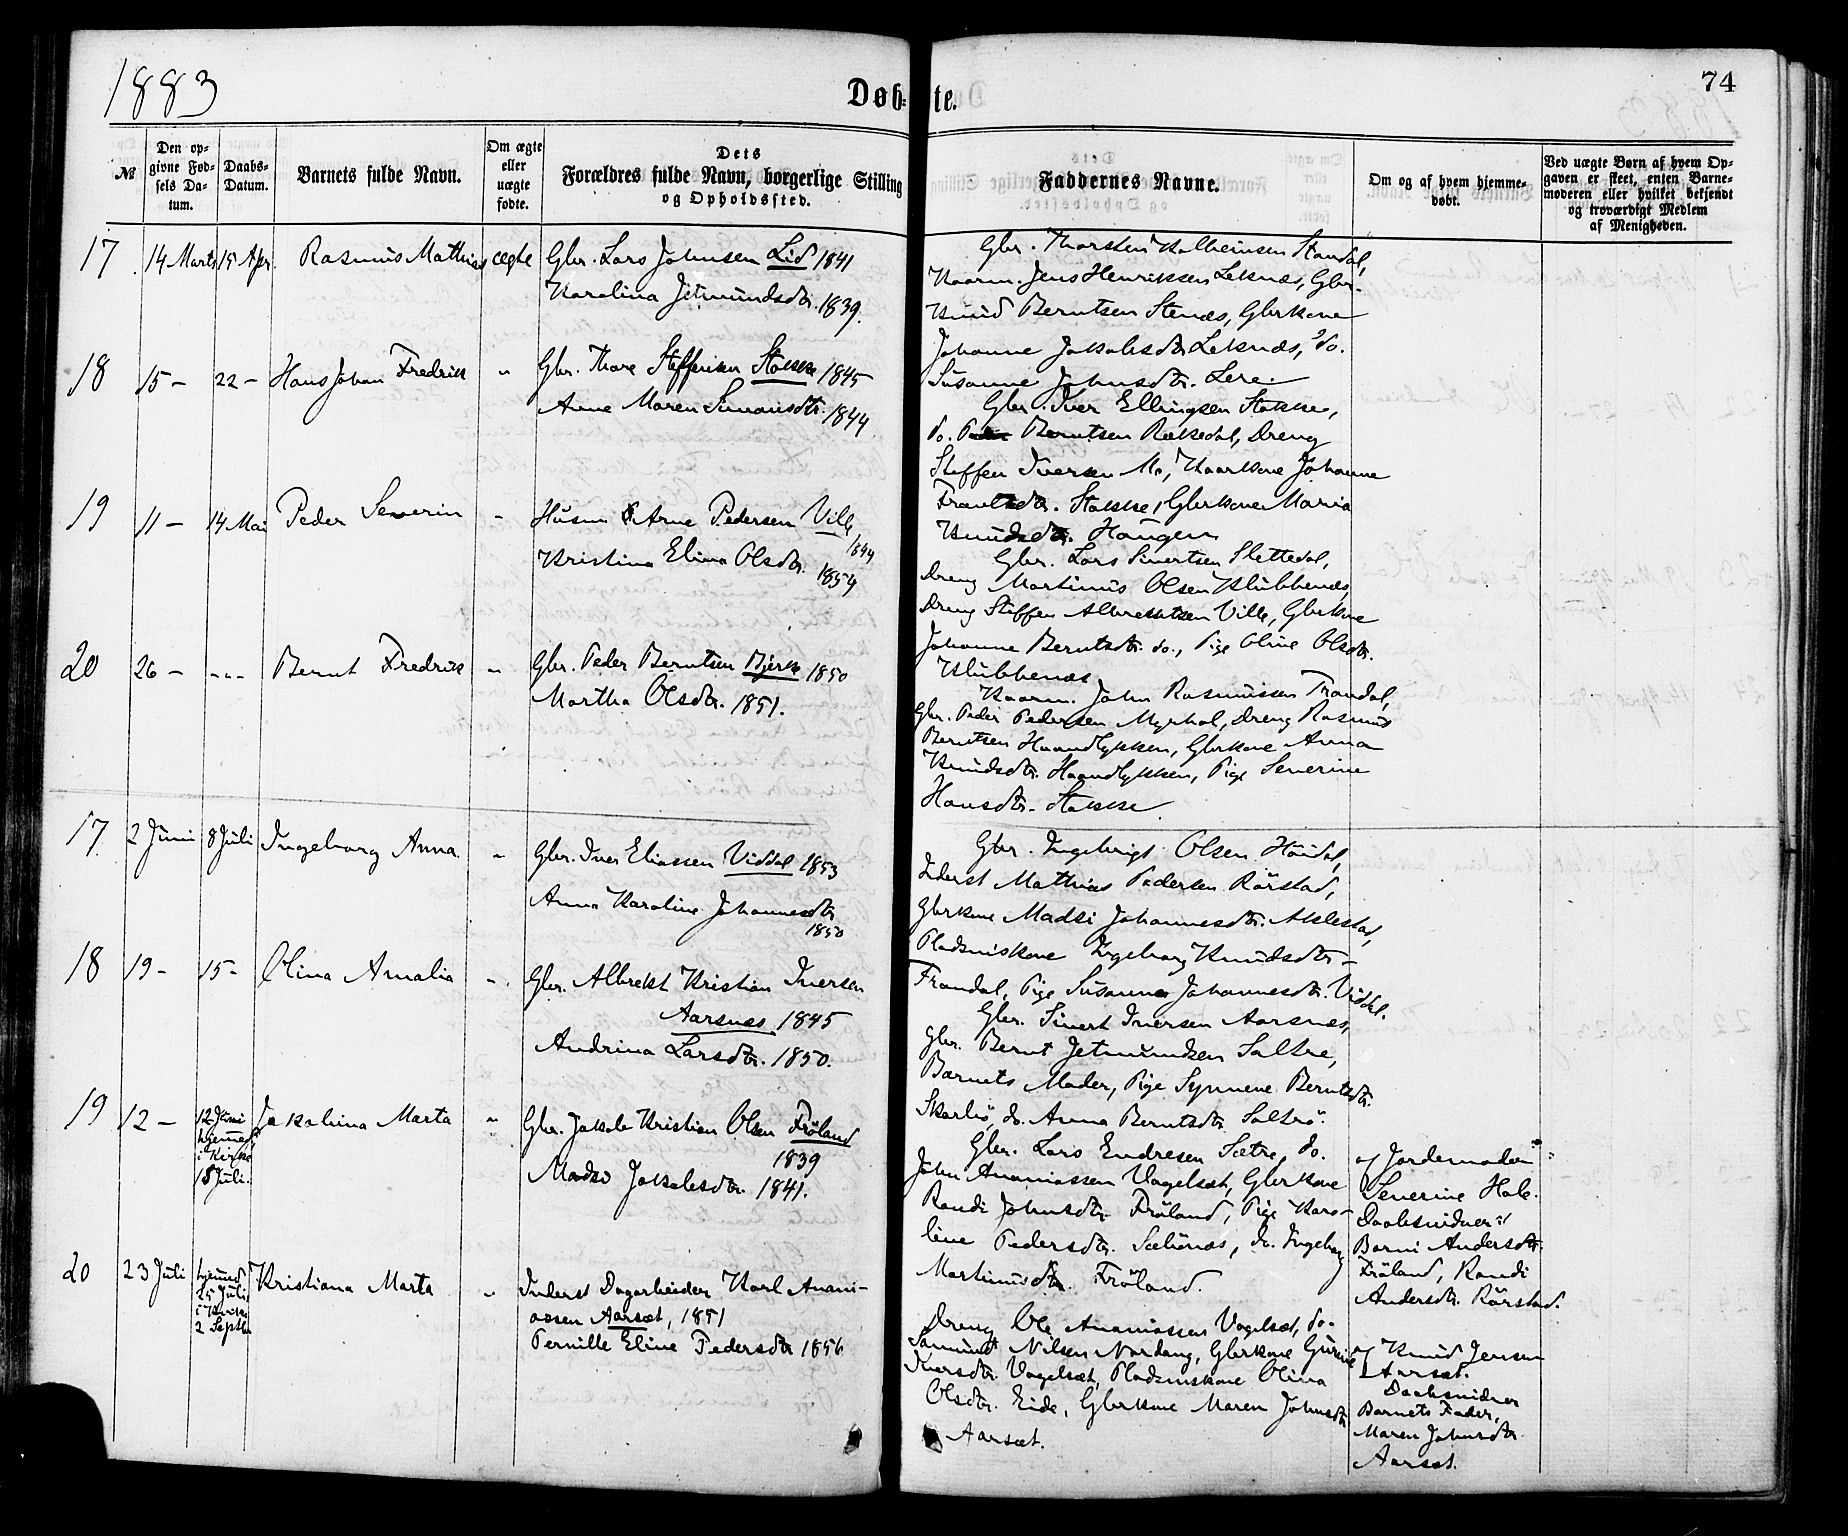 1883
Døb-te.
74
№
Den op-
givne Fød-
sels Da-
tum.
Daabs-
Datum.
Barnets fulde Navn.
Om ægte
eller
uægte
fødte.
Dets
Forældres fulde Navn, borgerlige Stilling
og Opholdssted.
Faddernes Navne.
Om og af hvem hjemme-
døbt.
Ved uægte Børn af hvem Op-
gaven er skeet, enten Barne-
moderen eller hvilket bekjendt
og troværdigt Medlem
af Menigheden.
17 14 Marts 15 Apr. Rasmus Mathias ægte Gbr. Lars Johnsen Lid 1841
Karolina Jetmundsdtr. 1839.
Gbr. Thorsten Standal,
Kaarm. Jens Henriksen Leknæs, Gbr.
Knud Berntsen Stenæs, Gbrkone
Johanne Jakobsdtr Leknæs, do.
Susanne Johnsdtr. Lere.
18 15 – 22 – Hans Johan Fredrik " Gbr. Thore Steffensen Stokke 1845
Anne Maren Simonsdtr. 1844
Gbr. Iver Ellingsen Stokke,
do. Peder Berntsen Rekkedal, Dreng
Steffen Iversen Mo, Kaarkone Johanne
Frantsdtr. Stokke, Gbrkone Maria
Knudsdtr. Haugen
19 11 – 14 Mai Peder Severin " Husm Arne Pedersen Ville
1844
Kristina Elina Olsdtr. 1854
Gbr. Lars Sivertsen Slettedal,
Dreng Martinus Olsen Klubbenæs,
Dreng Steffen Albrektsen Ville, Gbrkone
Johanne Berntsdtr. do., Pige Oline Olsdtr.
Klubbenæs
20 26 – "-" Bernt Fredrik " Gbr. Peder Berntsen Bjerk 1850
Martha Olsdtr. 1851.
Kaarm. John Rasmussen Trandal,
Gbr. Peder Pedersen Myrhol, Dreng Rasmus
Berntsen Haandlykken, Gbrkone Anna
Knudsdtr. Haandlykken, Pige Severine
Hansdtr. Stokke.
17 2 Juni 8 Juli Ingeborg Anna " Gbr. Iver Eliassen Viddal 1853
Anna Karoline Johannesdtr
1850
Gbr. Ingebrigt Olsen Høudal,
Inderst Mathias Pedersen Rörstad,
Gbrkone Madsi Johannesdtr. Aklestad,
Pladsmskone Ingeborg Knudsdtr –
Trandal, Pige Susanne Johannesdtr. Viddal.
18 19 – 15 – Olina Amalia " Gbr. Albrekt Kristian Iversen
Aarsnæs 1845
Andrina Larsdtr. 1850.
Gbr. Sivert Iversen Aarsnæs,
Gbr. Bernt Jetmundsen Saltre,
Barnets Moder, Pige Synneve Berntsdtr.
Skarbö, do. Anna Berntsdtr.
19 12 – 12 Juni
hjemmed
i Kirke
15 Juli. Jakobina Marta " Gbr. Jakob Kristian Olsen Fröland
1839
Madsi Jakobsdtr. 1841.
Gbr. Lars Endresen Sætre, do.
John Ananiassen Vagelsæt, Gbrkone
Randi Johnsdtr Fröland, Pige Karo-
line Pedersdtr. Sæbönæs, do. Ingeborg
Martinusdtr. Fröland.
af Jordemoder
Severine Hole.
Daabsvidner:
Barni Andersdtr.
Fröland, Randi
Andersdtr. Rörstad.
20 23 Juli hjemmd
25 Juli
i Kirke
2 Septb. Kristiana Marta " Inderst Dagarbeider Karl Anani-
assen Aarsæt, 1851
Pernille Eline Pedersdtr 1856
Dreng Ole Ananiassen Vagelsæt, do.
Samund Nilsen Nordang, Gbrkone Gurine
Iversdtr. Vagelsæt, Pladsmskone Olina
Olsdtr. Eide, Gbrkone Maren Johnsdtr
Aarsæt.
af Knud Jensen
Aarsæt.
Daabsvidner
Barnets Fader,
Maren Johnsdtr.
Aarsæt.